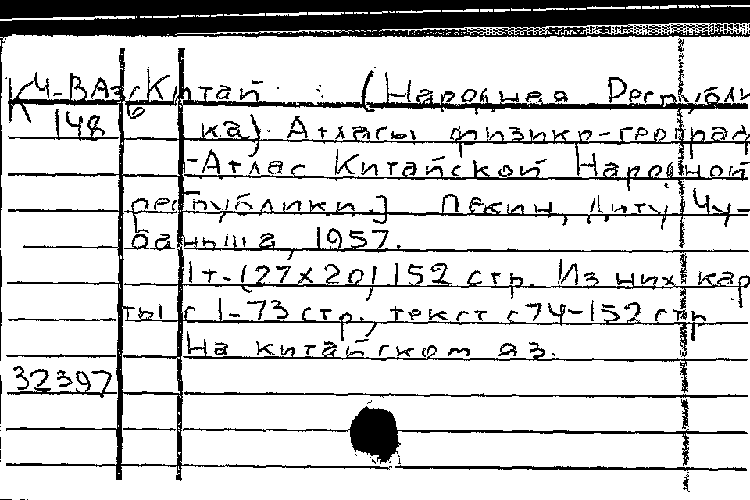 К Ч-ВАз6 Китай (Народная Республи
148 ка). Атласы физико-географ
-Атлас Китайской Народной
республики.] Пекин, Диту Чу-
баньша, 1957.
1т. (27х20) 152 стр. Из них кар
ты с 1-73 стр., текст с 74-152 стр
На китайском яз.
32397